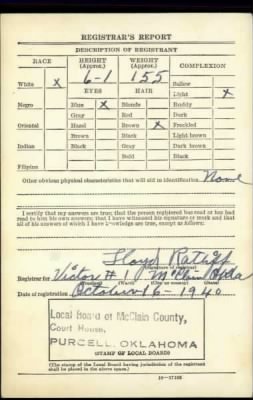 REGISTRAR'S REPORT
DESCRIPTION OF REGISTRANT
RACE HEIGHT (Approx.) WEIGHT (Approx.) COMPLEXION
White X 6-1 155 Sallow
EYES HAIR Light X
Negro Blue X Blonde Ruddy
Gray Red Dark
Oriental Hazel Brown X Freckled
Brown Black Light brown
Indian Black Gray Dark brown
Bald Black
Filipino
Other obvious physical characteristics that will aid in identification None
I certify that my answers are true; that the person registered has read or has had
read to him his own answers; that I have witnessed his signature or mark and that
all of his answers of which I have knowledge are true, except as follows:
Floyd Ratliff
(Signature of registrar)
Registrar for Victor #1 McClain Okla
Date of registration October 16-1940
Local Board of McClain County,
Court House,
PURCELL, OKLAHOMA
STAMP OF LOCAL BOARD
(The stamp of the Local Board having jurisdiction of the registrant
shall be placed in the above space.)